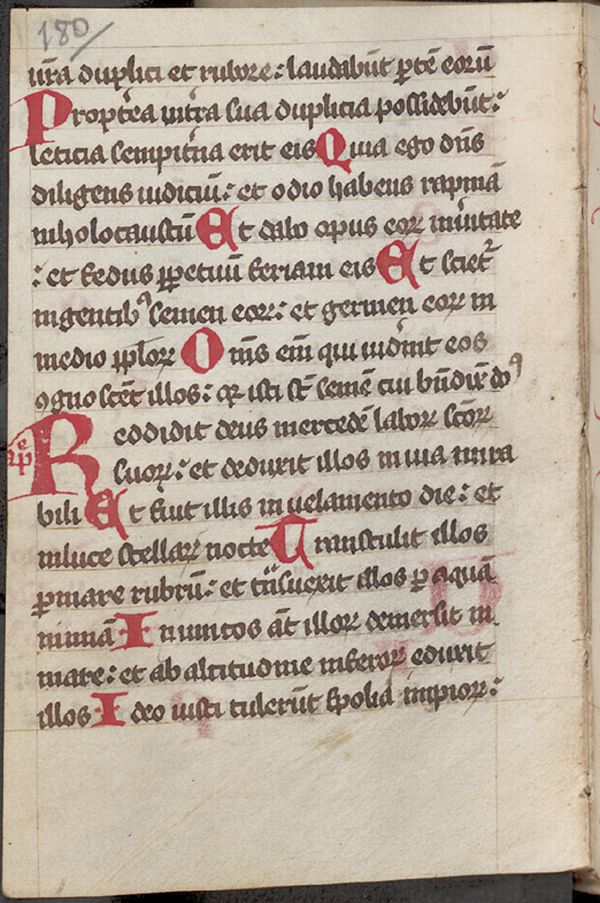 180
ura duplici et rubore: laudabūt ptē eorū
Proptea intra sua duplicia possidebūt:
leticia sempitna erit eis Quia ego dn̄s
diligens iudiciū: et odio habens rapinā
inholocaustū Et dabo opus eoꝝ inuitate
: et fedus ꝑpetuū feriam eis Et scietᷣ
ingentibꝰ semen eoꝝ: et germen eoꝝ in
medio pploꝝ Om̄s eī qui uidint eos
ꝯgnoscēt illos: qꝛ isti st̄ semē cui bn̄dix̄ dn̄s
Reddidit deus mercedē laboꝝ scōꝝ
suoꝝ: et deduxit illos inuia mira
bili Et fiut illis in uelamento die: et
inluce stellaꝝ nocte Transtulit illos
ꝑmare rubrū: et tnsuexit illos ꝑ aquā
nimiā Inimicos āt illoꝝ demersit in
mare: et ab altitudine inferoꝝ eduxit
illos Ideo iusti tulerūt spolia impioꝝ: